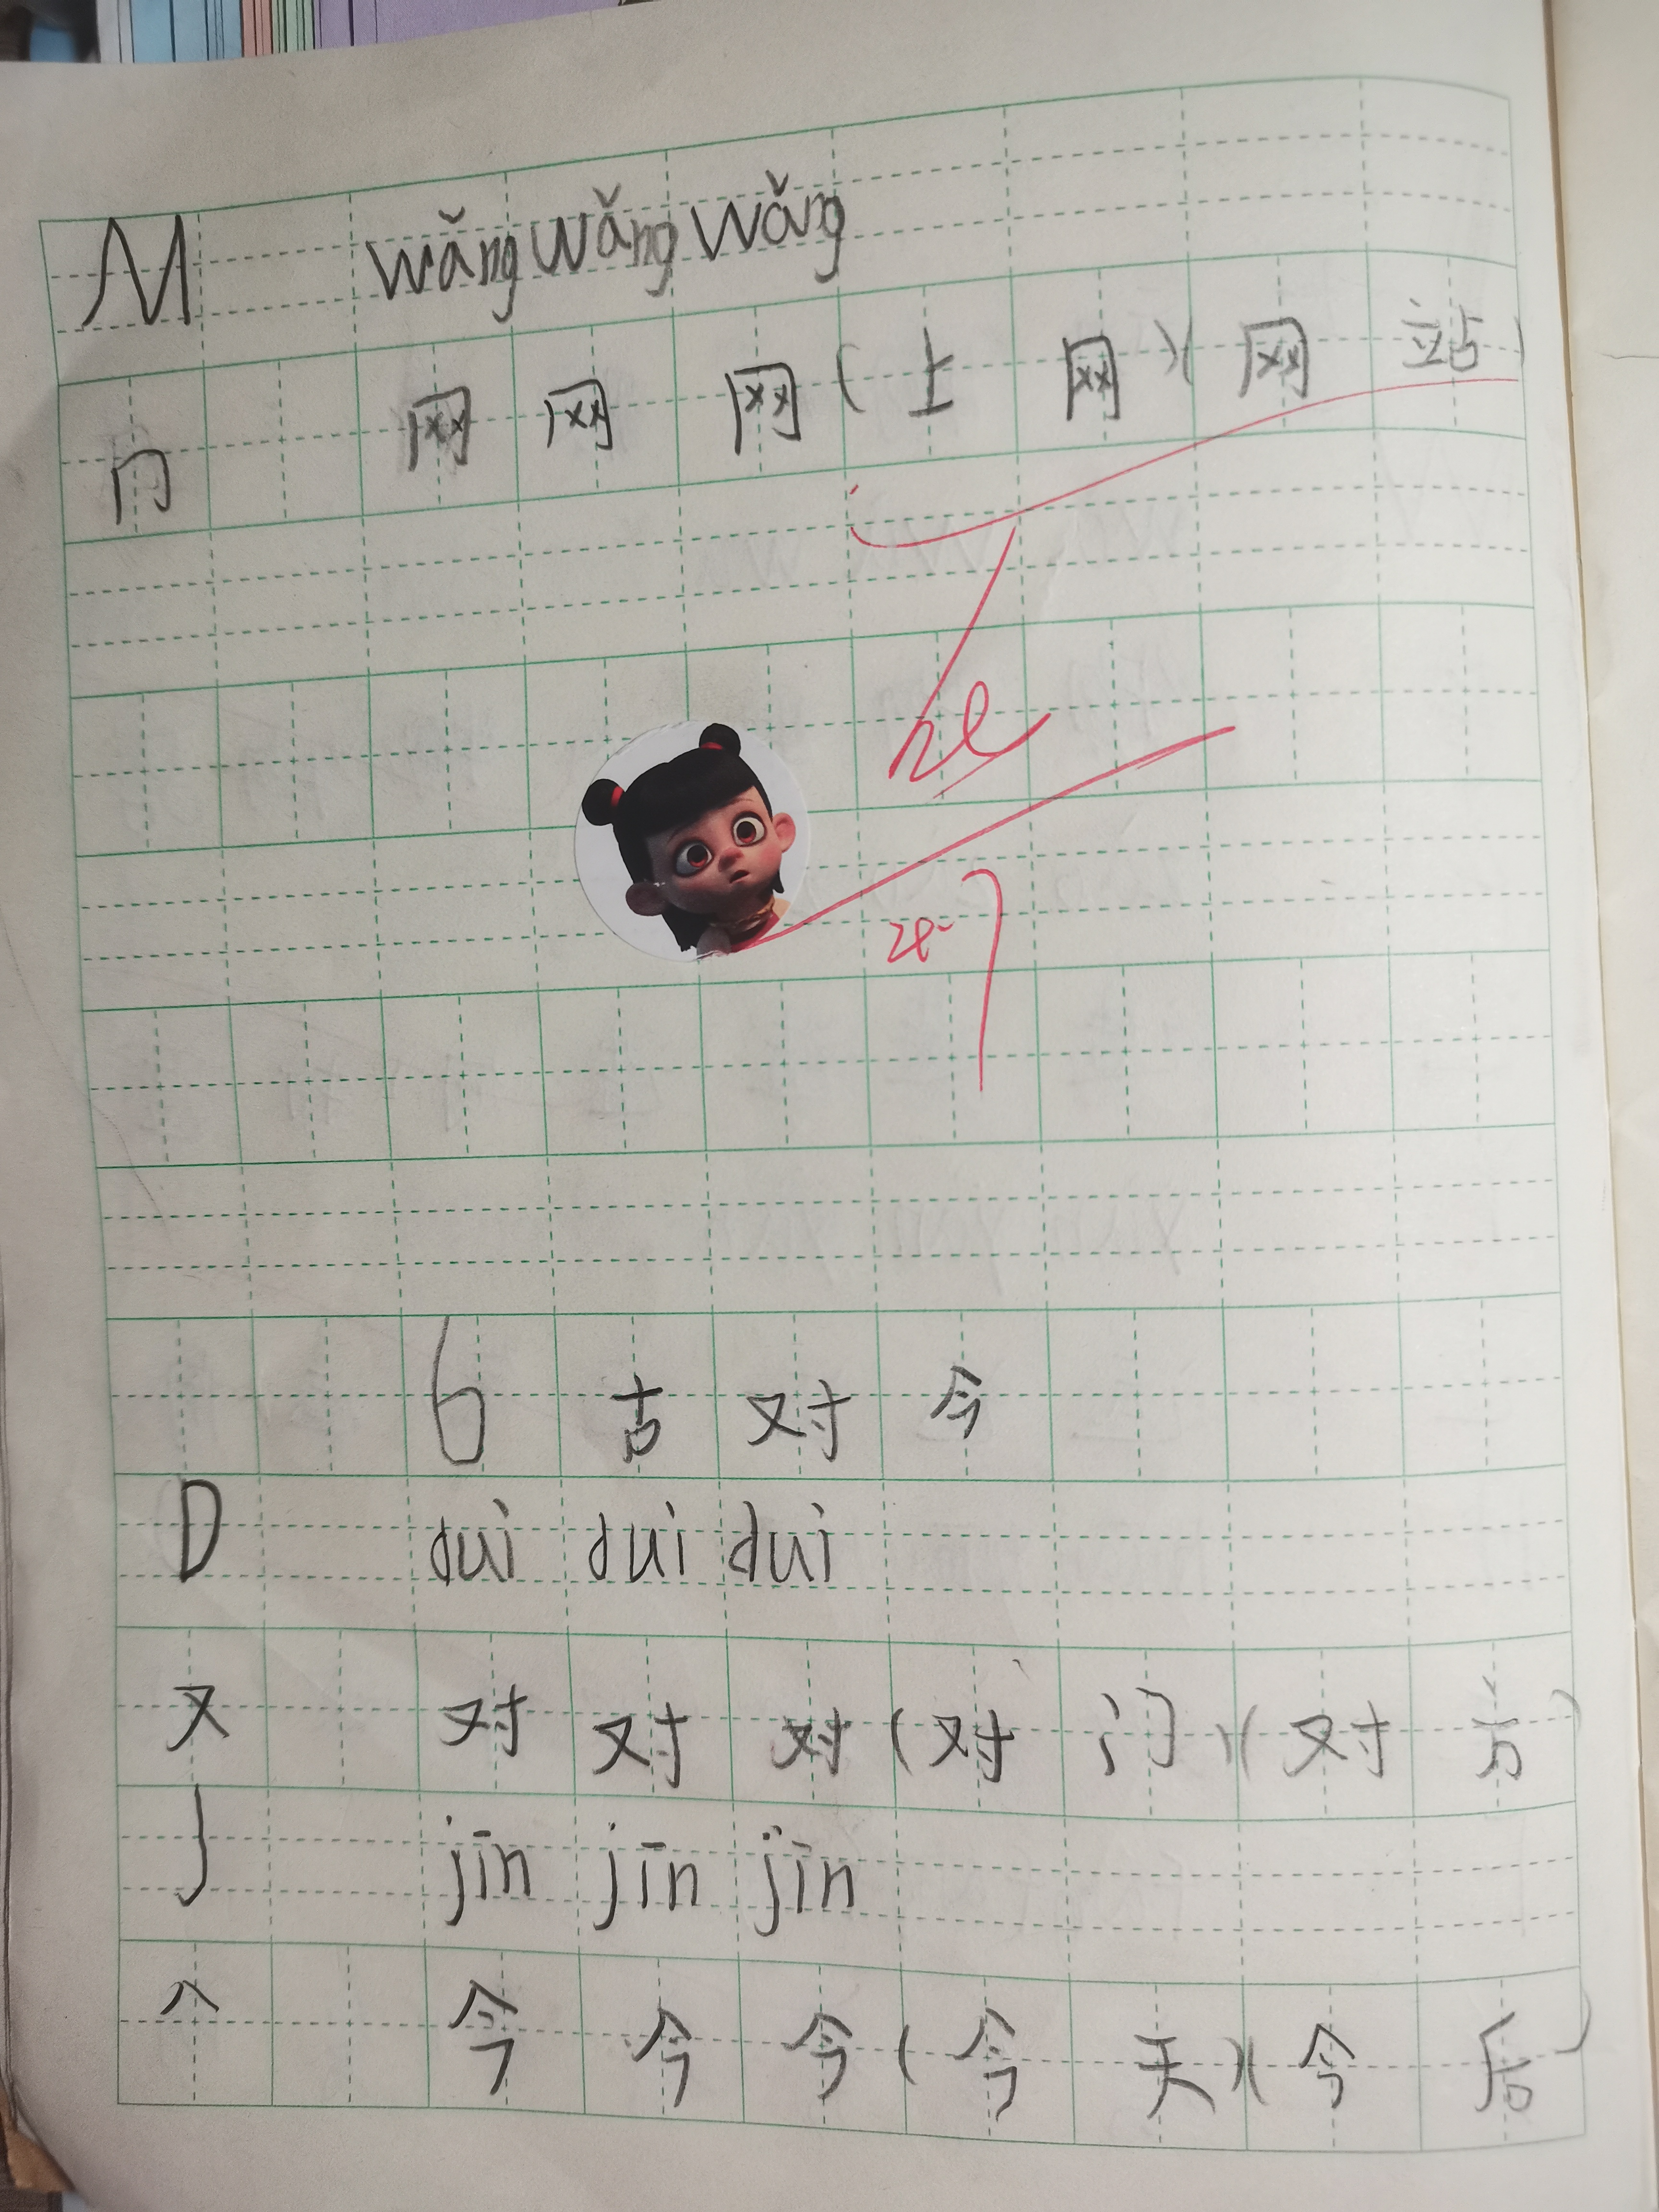 M wǎng wǎng wǎng
冂 网 网 网 (上 网) (网 站)
6 古 对 今
D duì duì duì
又 对 对 对 (对 门) (对 方)
J jīn jīn jīn
人 今 今 今 (今 天) (今 后)